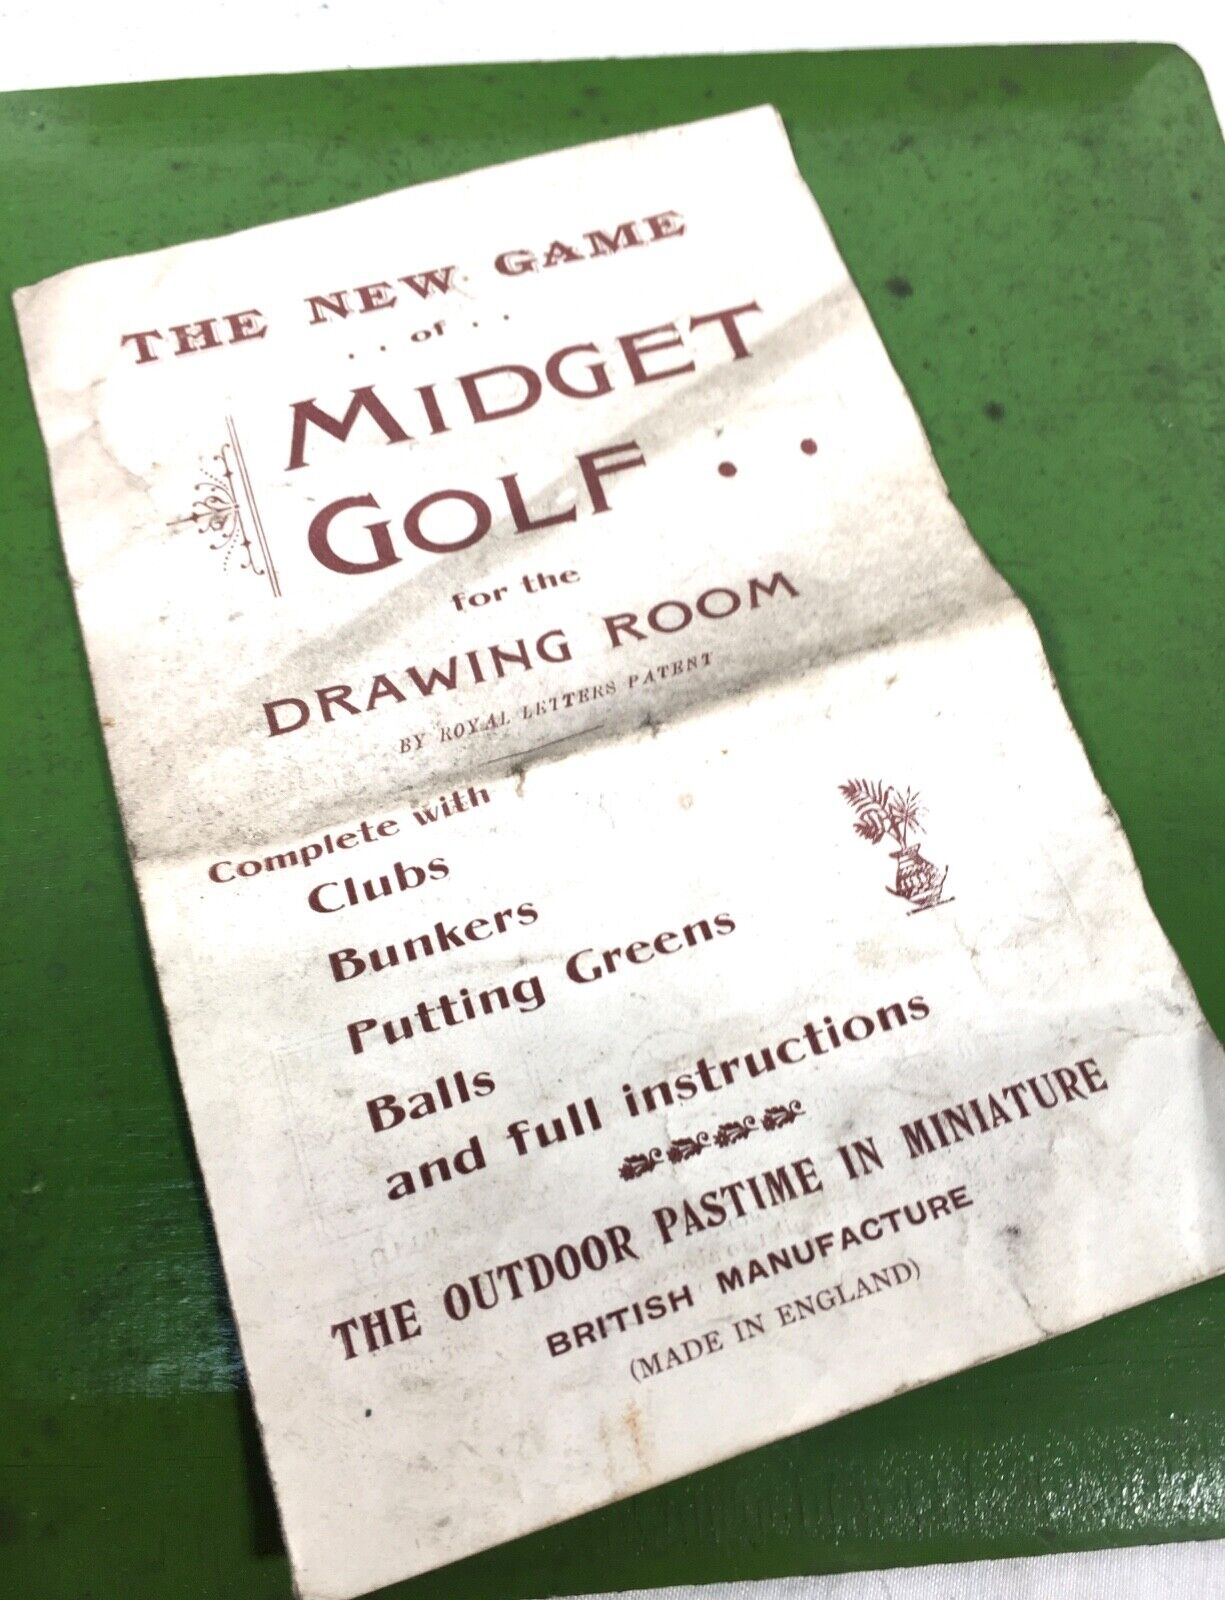 THE NEW GAME
. . of . .
MIDGET
GOLF . .
for the
DRAWING ROOM
BY ROYAL LETTERS PATENT
Complete with
Clubs
Bunkers
Putting Greens
Balls
and full instructions
THE OUTDOOR PASTIME IN MINIATURE
BRITISH MANUFACTURE
(MADE IN ENGLAND)